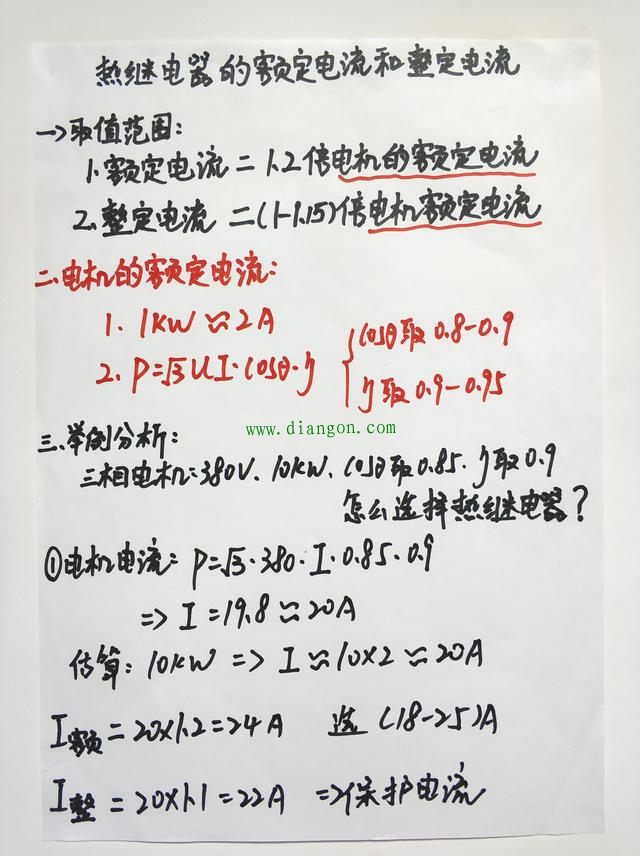 热继电器的额定电流和整定电流
一>取值范围:
1.额定电流=1.2倍电机的额定电流
2.整定电流=(1-1.15)倍电机额定电流
二.电机的额定电流:
1. 1KW≈2A
2. P=√3UI·cosθ·η
cosθ取0.8-0.9
η取0.9-0.95
www.diangon.com
三.举例分析:
三相电机:380V. 10KW. cosθ取0.85. η取0.9
怎么选择热继电器?
①电机电流: P=√3·380·I·0.85·0.9
=> I=19.8≈20A
估算: 10KW => I≈10×2≈20A
I额=20×1.2=24A 选(18-25)A
I整=20×1.1=22A =>保护电流